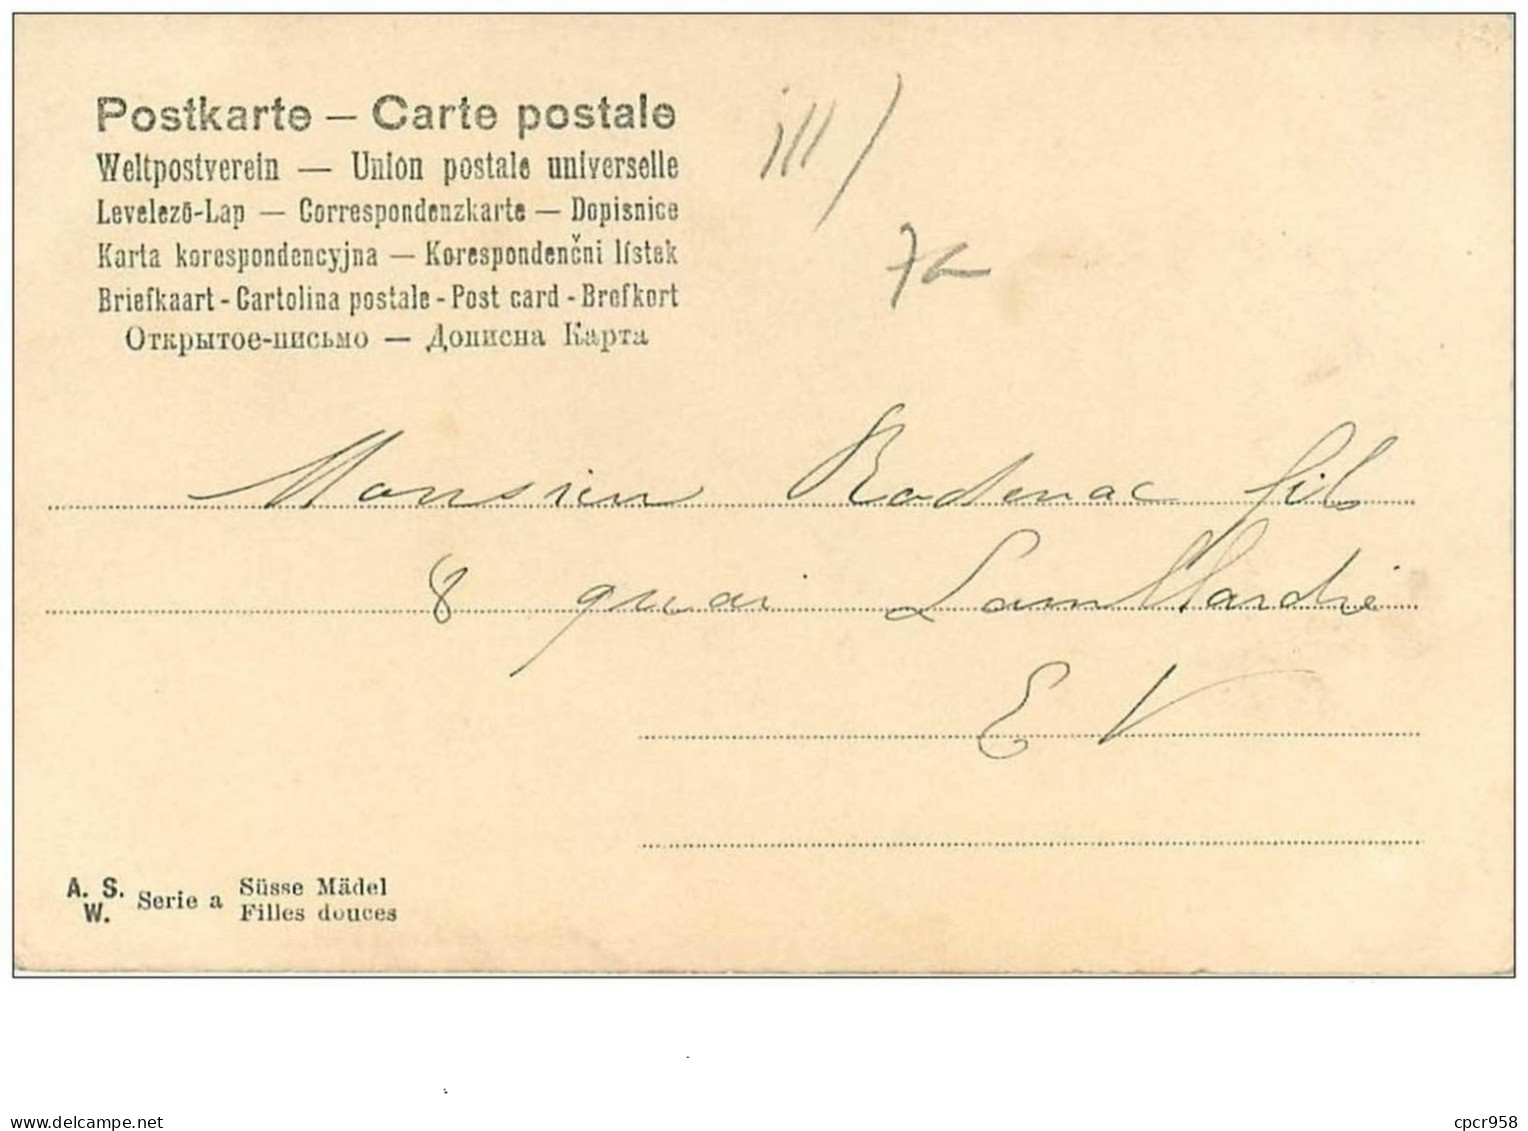 Postkarte – Carte postale
Weltpostverein — Union postale universelle
Levelező-Lap — Correspondenzkarte — Dopisnice
Karta korespondencyjna — Korespondenčni lístek
Briefkaart - Cartolina postale - Post card - Brefkort
Открытое-письмо — Дописна Карта
7a
Monsieur Rodenac fils
8 quai
E V
A. S. W. Serie a Süsse Mädel
Filles douces
cpcr958